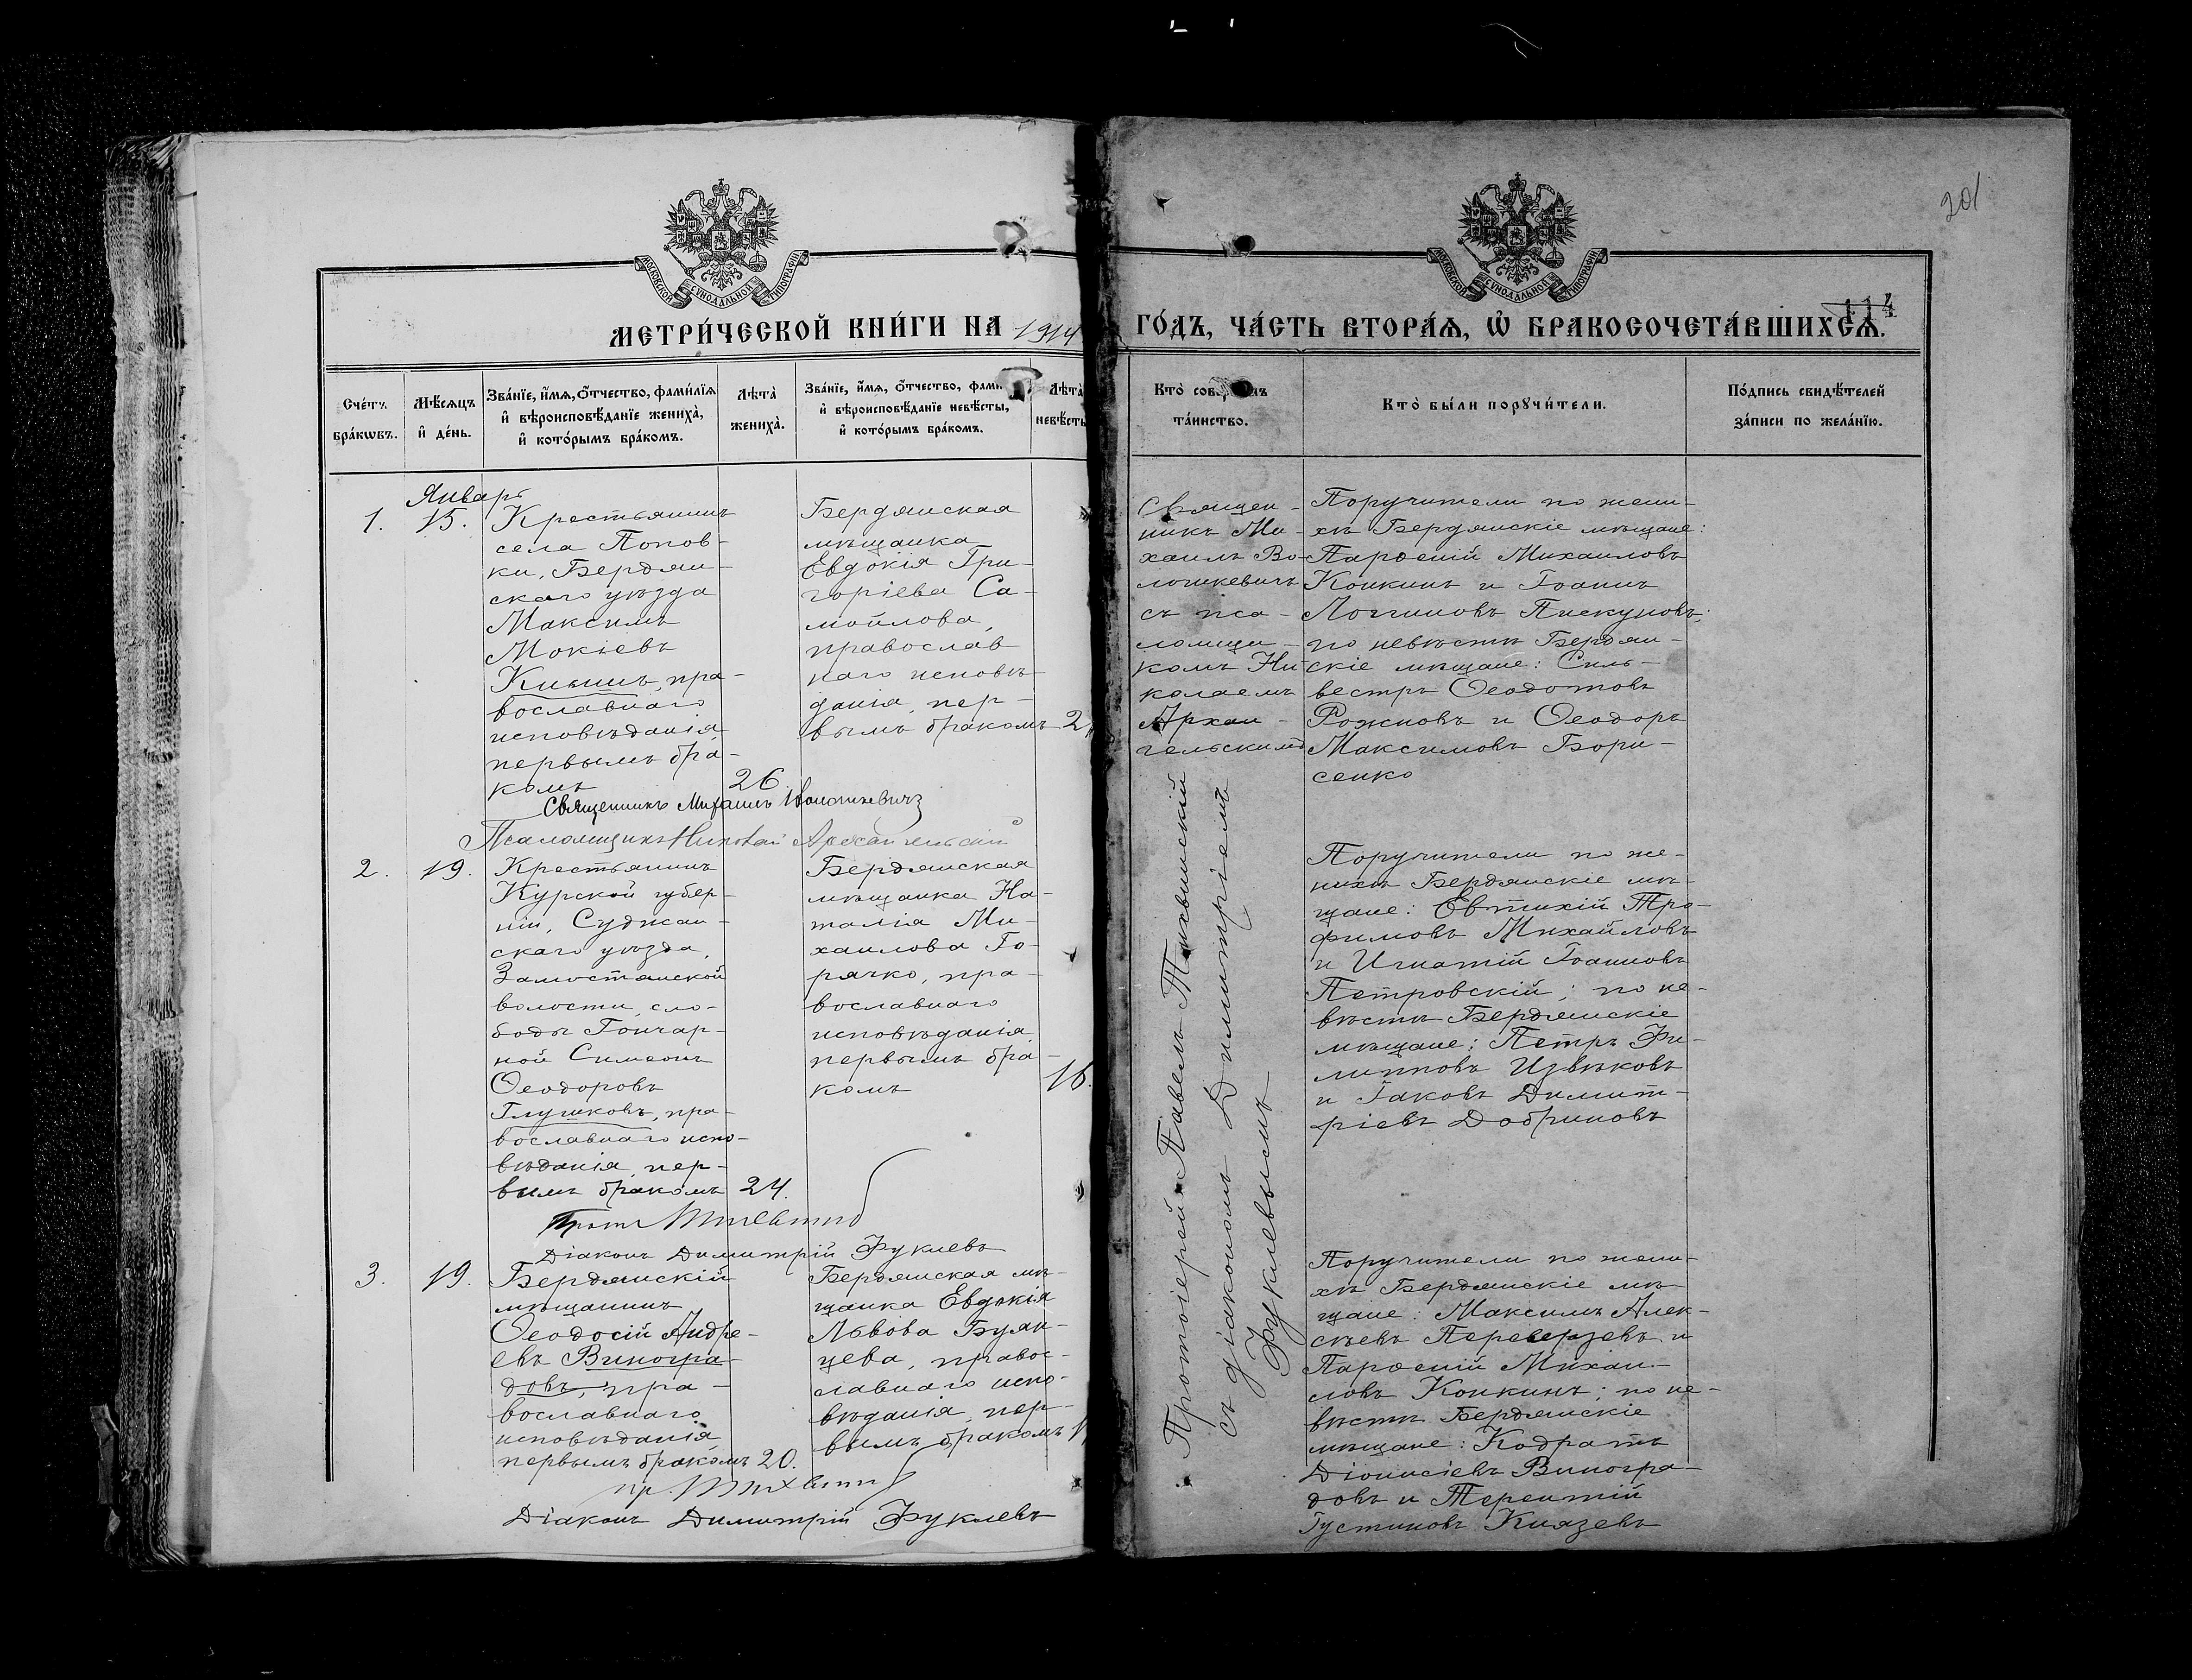 201
114
МОСКОВСКОЙ СѴНОДАЛЬНОЙ ТИПОГРАФІИ
МОСКОВСКОЙ СѴНОДАЛЬНОЙ ТИПОГРАФІИ
МЕТРИ́ЧЕСКОЙ КНИ́ГИ НА 1914
ГО́ДЪ, ЧА́СТЬ ВТОРА́Ѧ, Ѽ БРАКОСОЧЕТА́ВШИХСѦ.
Сче́тъ
бра́кѡвъ.
Мѣ́сѧцъ
и҆ де́нь.
Зва́нїе, и҆́мѧ, ѻ҆́тчество, фами́лїѧ
и҆ вѣроисповѣ́данїе жениха̀,
и҆ кото́рымъ бра́комъ.
Лѣта̀
жениха̀.
Зва́нїе, и҆́мѧ, ѻ҆́тчество,
и҆ вѣроисповѣ́данїе невѣ́сты,
и҆ кото́рымъ бра́комъ.
Лѣта̀
невѣ́сты
Кто̀
та́инство.
Кто̀ бы́ли порꙋчи́тели.
По́дпись свидѣ́телей
за́писи по жела́нїю.
Январь
1.
15.
Крестьянинъ
села Попов-
ки, Бердян-
скаго уѣзда
Максимъ
Мокіевъ
пра-
вославнаго
исповѣданія,
первымъ бра-
комъ
26
Бердянская
мѣщанка
Евдокія Гри-
горіева Са-
мойлова,
православ
наго исповѣ-
данія, пер-
вымъ бракомъ
Священ-
никъ Ми-
хаилъ Во-
лошкевичъ
съ пса-
ломщи-
комъ Ни-
колаемъ
Архан-
гельскимъ
Поручители по жени-
хѣ Бердянскіе мѣщане:
Парѳеній Михаиловъ
Конкинъ и Іоаннъ
Логгиновъ Пискуновъ;
по невѣстѣ Бердян-
скіе мѣщане: Силь-
вестръ Ѳеодотовъ
Рожновъ и Ѳеодоръ
Максимовъ Бори-
сенко
Священникъ Михаилъ Волошкевичъ
Псаломщикъ Николай Архангельскій
2.
19.
Крестьянинъ
Курской губер-
ніи, Суджан-
скаго уѣзда,
Замостянской
волости, сло-
боды Гончар-
ной Симеонъ
Ѳеодоровъ
Глушковъ, пра-
вославнаго испо-
вѣданія, пер-
вымъ бракомъ
24.
Бердянская
мѣщанка На-
талія Ми-
хаилова Го-
рячко, пра-
вославнаго
исповѣданія
первымъ бра-
комъ
16.
Протоіерей Павелъ Тихвинскій
съ діакономъ Димитріемъ
Фуклевымъ
Поручители по же-
нихѣ Бердянскіе мѣ-
щане: Евтихій Тро-
фимовъ Михайловъ
и Игнатій Іоанновъ
Петровскій; по не-
вѣстѣ Бердянскіе
мѣщане: Петръ Фи-
липповъ Извѣковъ
и Іаковъ Димит-
ріевъ Добриновъ
Діаконъ Димитрій Фуклевъ
3.
19.
Бердянскій
мѣщанинъ
Ѳеодосій Андре-
евъ Виногра-
довъ, пра-
вославнаго
исповѣданія
первымъ бракомъ
20.
Бердянская мѣ-
щанка Евдокія
Львова Буян-
цева, правос-
лавнаго испо-
вѣданія, пер-
вымъ бракомъ
Поручители по жени-
хѣ Бердянскіе мѣ-
щане: Максимъ Алек-
сѣевъ Переверзевъ и
Парѳеній Михаи-
ловъ Конкинъ; по не-
вѣстѣ Бердянскіе
мѣщане: Кодратъ
Діонисіевъ Виногра-
довъ и Терентій
Іустиновъ Князевъ
Діаконъ Димитрій Фуклевъ